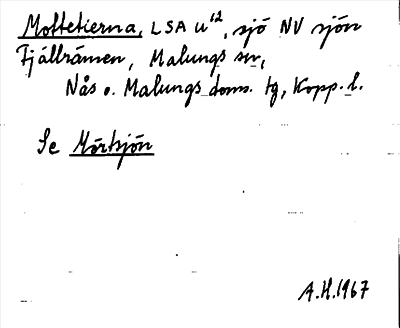 Moftetierna, LSA u¹², sjö NV sjön
Fjällrämen, Malungs sn,
Nås o. Malungs doms. tg, Kopp. l.
Se Mörtsjön
A.H. 1967